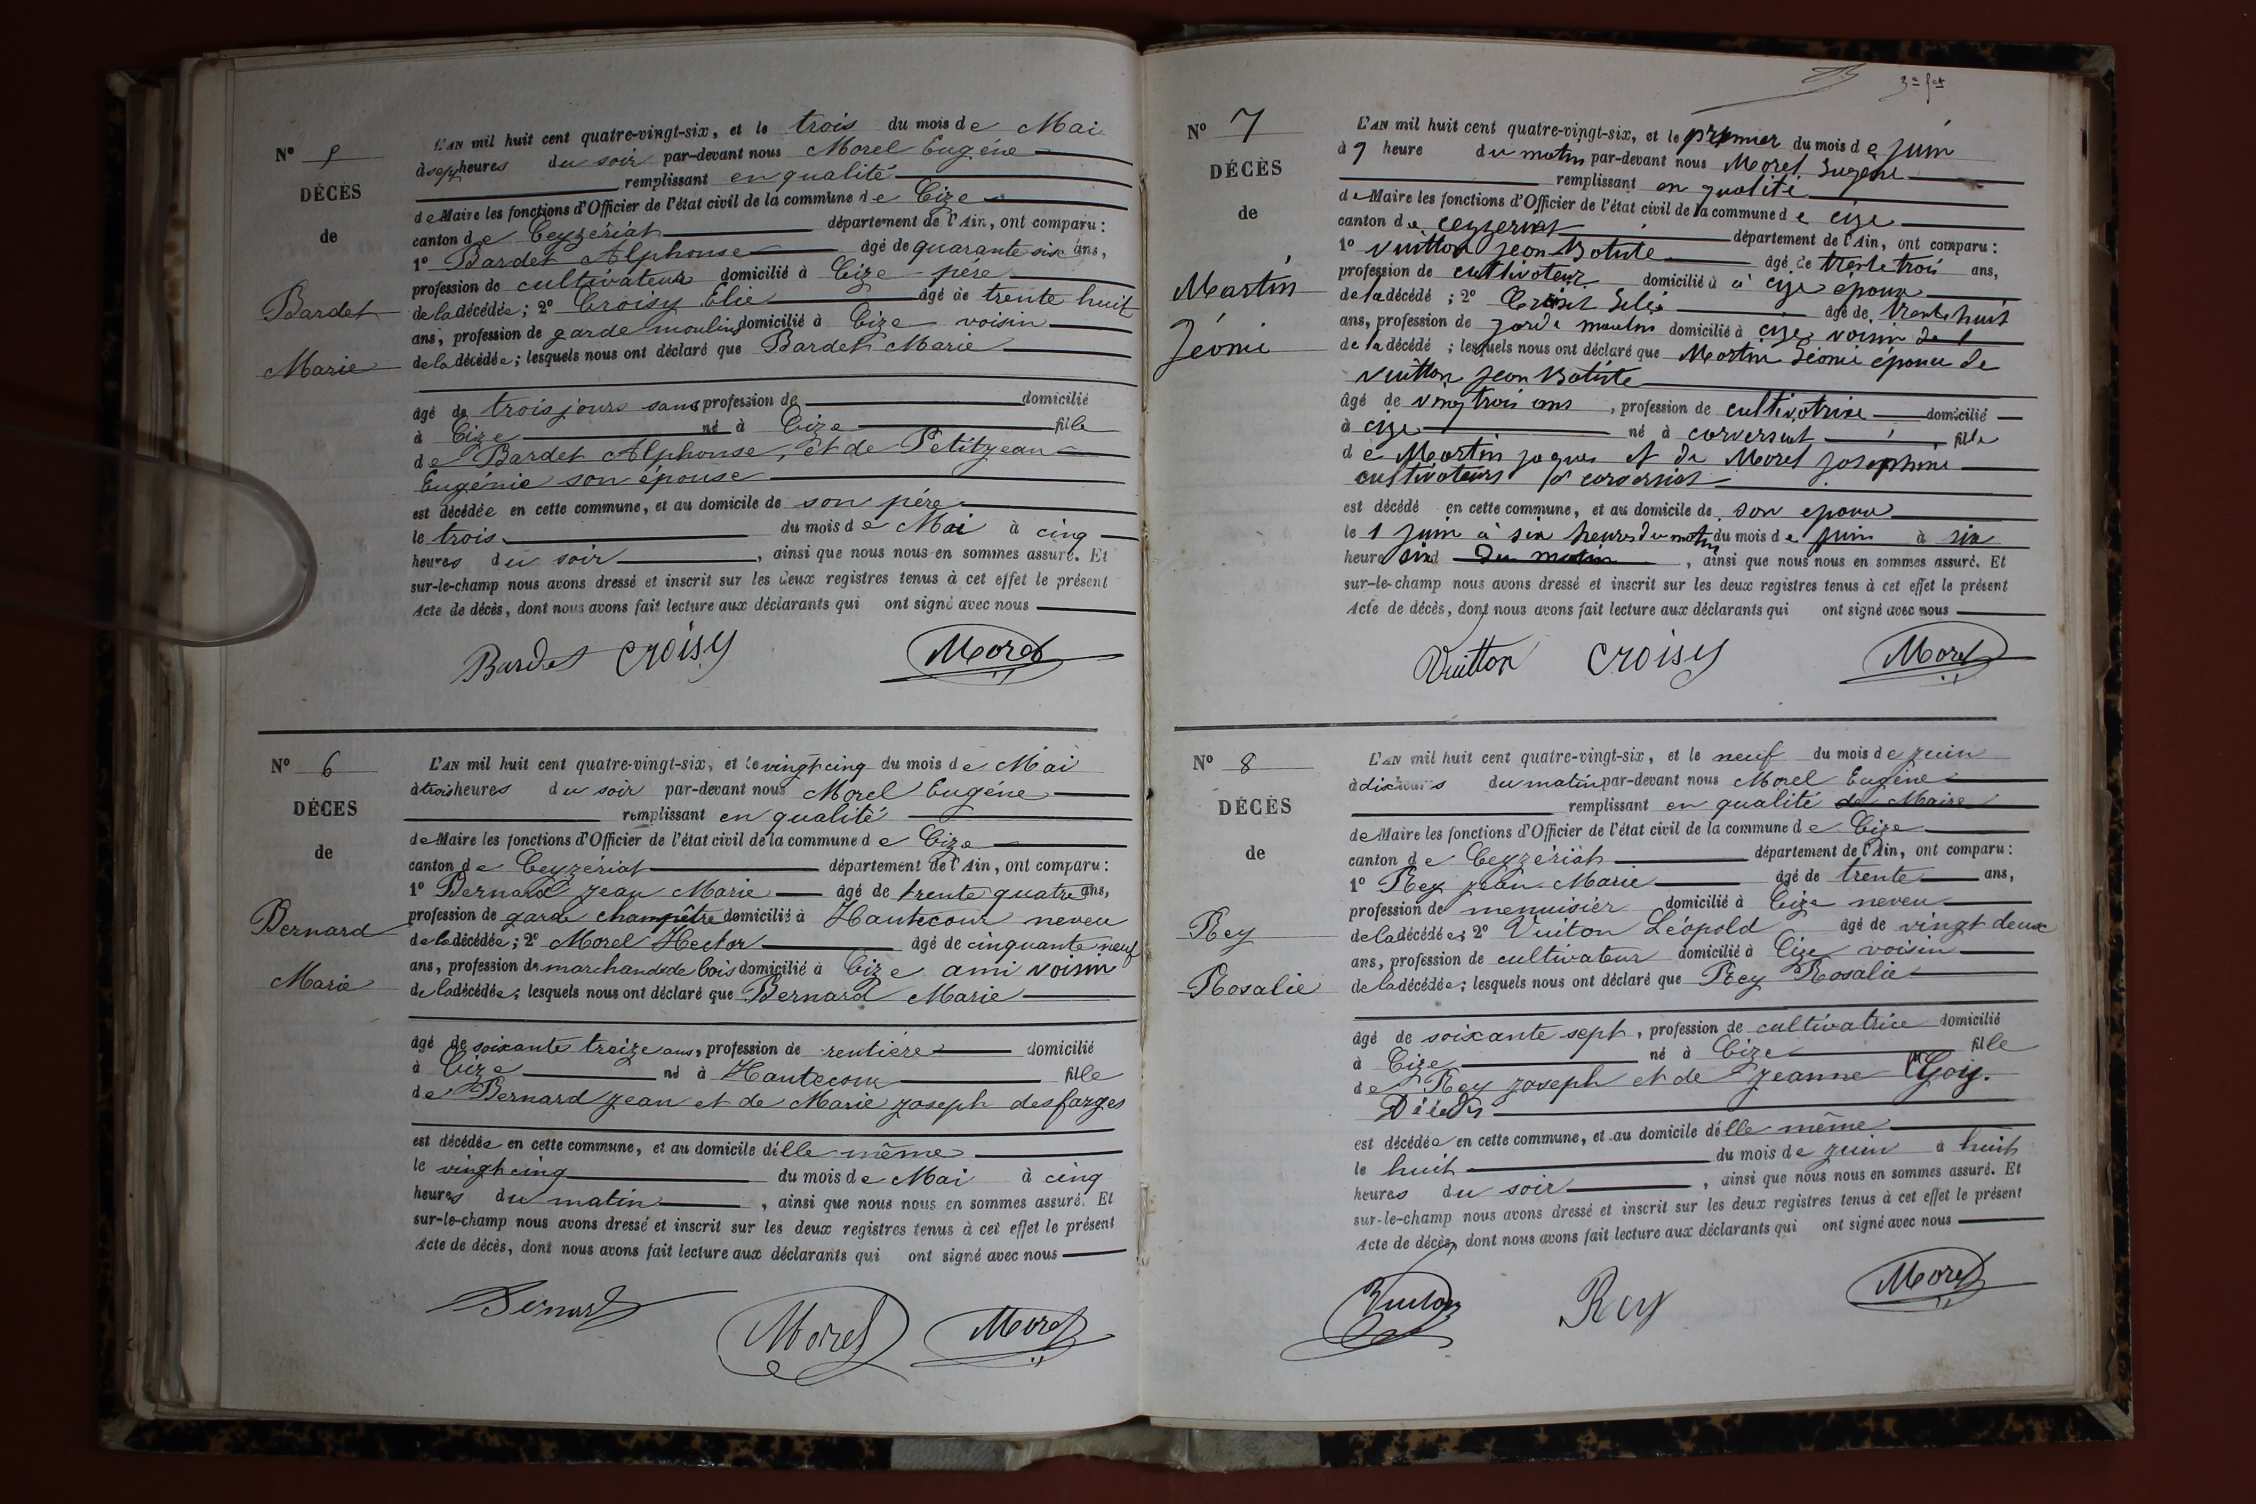 N° 5
DÉCÈS
de
Bardet
Marie
L'AN mil huit cent quatre-vingt-six, et le trois du mois de Mai
à sept heures du soir par-devant nous Morel Eugène
remplissant en qualité
de Maire les fonctions d'Officier de l'état civil de la commune de Cize
canton de Ceyzériat département de l'Ain, ont comparu :
1° Bardet Alphonse âgé de quarante six ans,
profession de cultivateur domicilié à Cize père
de la décédée ; 2° Croisy Elie âgé de trente huit
ans, profession de garde moulins domicilié à Cize voisin
de la décédée ; lesquels nous ont déclaré que Bardet Marie
âgé de trois jours sans profession de domicilié
à Cize né à Cize fille
de Bardet Alphonse, et de Petitjean
Eugénie son épouse
est décédée en cette commune, et au domicile de son père
le trois du mois de Mai à cinq
heures du soir , ainsi que nous nous en sommes assuré. Et
sur-le-champ nous avons dressé et inscrit sur les deux registres tenus à cet effet le présent
Acte de décès, dont nous avons fait lecture aux déclarants qui ont signé avec nous
Bardet Croisy Morel
N° 6
DÉCES
de
Bernard
Marie
L'AN mil huit cent quatre-vingt-six, et le vingt cinq du mois de Mai
à trois heures du soir par-devant nous Morel Eugène
remplissant en qualité
de Maire les fonctions d'Officier de l'état civil de la commune de Cize
canton de Ceyzériat département de l'Ain, ont comparu :
1° Bernard Jean Marie âgé de trente quatre ans,
profession de garde champêtre domicilié à Hautecour neveu
de la décédée ; 2° Morel Hector âgé de cinquante neuf
ans, profession de marchand de bois domicilié à Cize ami voisin
de la décédée ; lesquels nous ont déclaré que Bernard Marie
âgé de soixante treize ans, profession de rentière domicilié
à Cize né à Hautecour fille
de Bernard Jean et de Marie Joseph desfarges
est décédée en cette commune, et au domicile d'elle même
le vingt cinq du mois de Mai à cinq
heures du matin , ainsi que nous nous en sommes assuré. Et
sur-le-champ nous avons dressé et inscrit sur les deux registres tenus à cet effet le présent
Acte de décès, dont nous avons fait lecture aux déclarants qui ont signé avec nous
Bernard Morel Morel
N° 7
DÉCÈS
de
Martin
Jéomi
L'AN mil huit cent quatre-vingt-six, et le premier du mois de juin
à 7 heure du matin par-devant nous Morel Eugène
remplissant en qualité
de Maire les fonctions d'Officier de l'état civil de la commune de cize
canton de ceyzeriat département de l'Ain, ont comparu :
1° Vuitton Jean Batiste âgé de trente trois ans,
profession de cultivateur domicilié à à cize epoux
de la décédé ; 2° âgé de trente huit
ans, profession de garde moulin domicilié à cize voisin de
de la décédé ; lesquels nous ont déclaré que Martin Jéomi épouse de
Vuitton Jean Batiste
âgé de vingt trois ans , profession de cultivatrice domicilié
à cize né à corversiat fille
de Martin jaques et de Morel josephine
cultivateurs a corversiat
est décédé en cette commune, et au domicile de son epoux
le 1 juin à six heures du matin du mois de juin à six
heure du matin , ainsi que nous nous en sommes assuré. Et
sur-le-champ nous avons dressé et inscrit sur les deux registres tenus à cet effet le présent
Acte de décès, dont nous avons fait lecture aux déclarants qui ont signé avec nous
Vuitton Croisy Morel
N° 8
DÉCÈS
de
Rey
Rosalie
L'AN mil huit cent quatre-vingt-six, et le neuf du mois de juin
à dix heures du matin par-devant nous Morel Eugène
remplissant en qualité de Maire
de Maire les fonctions d'Officier de l'état civil de la commune de Cize
canton de Ceyzériat département de l'Ain, ont comparu :
1° Rey Jean Marie âgé de trente ans,
profession de menuisier domicilié à Cize neveu
de la décédée ; 2° Vuiton Léopold âgé de vingt deux
ans, profession de cultivateur domicilié à Cize voisin
de la décédée ; lesquels nous ont déclaré que Rey Rosalie
âgé de soixante sept , profession de cultivatrice domicilié
à Cize né à Cize fille
de Rey Joseph et de Jeanne Goy.
Décédés
est décédée en cette commune, et au domicile d'elle même
le huit du mois de juin à huit
heures du soir , ainsi que nous nous en sommes assuré. Et
sur-le-champ nous avons dressé et inscrit sur les deux registres tenus à cet effet le présent
Acte de décès, dont nous avons fait lecture aux déclarants qui ont signé avec nous
Vuiton Rey Morel